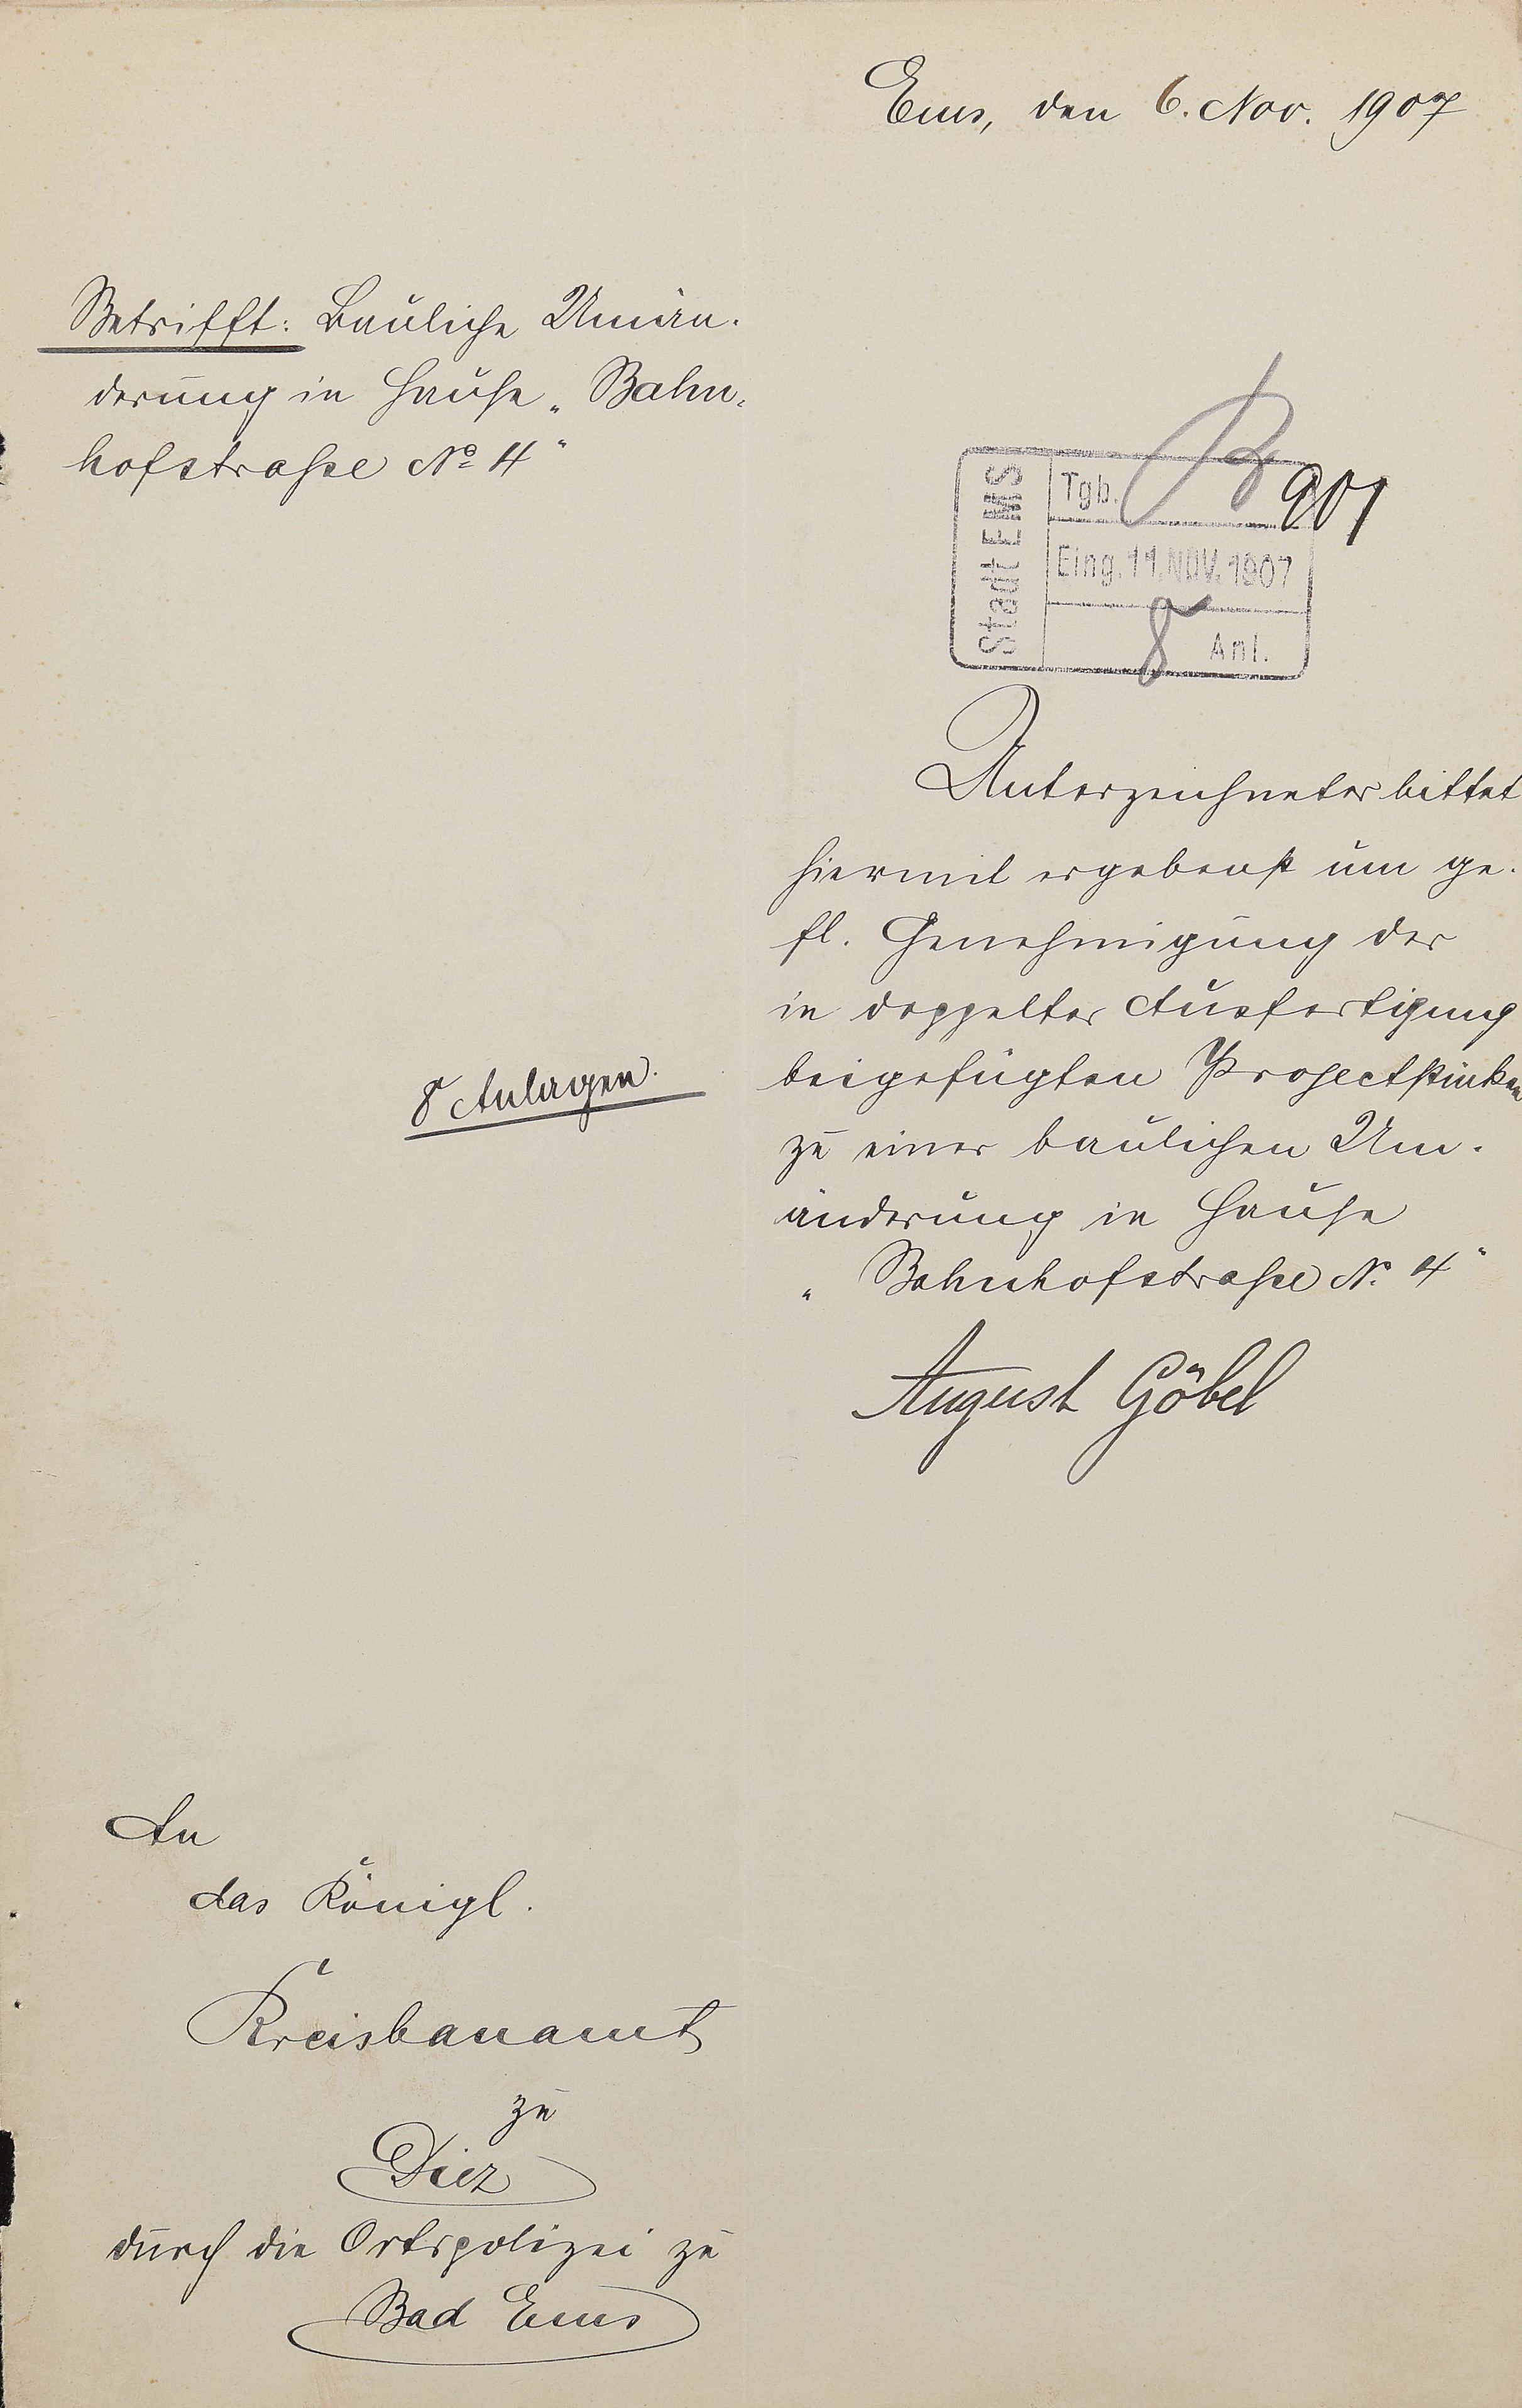 Ems, den 6. Nov. 1907
Betrifft: Bauliche Umän-
derung in Hause „Bahn-
hofstraße No 4“
Stadt EMS
Tgb. B 901
Eing. 11. NOV. 1907
8 Anl.
Unterzeichneter bittet
hiermit ergebenst um ge-
fl. Genehmigung der
in doppelter Ausfertigung
beigefügten Projectstücken
zu einer baulichen Um-
änderung in Hause
„Bahnhofstraße No. 4“
8 Anlagen.
August Göbel
An
das Königl.
Kreisbauamt
zu
Diez
durch die Ortspolizei zu
Bad Ems